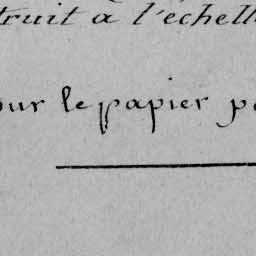 truit a l'echell
our le papier p